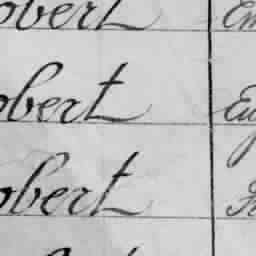 obert Em
obert Eu
obert